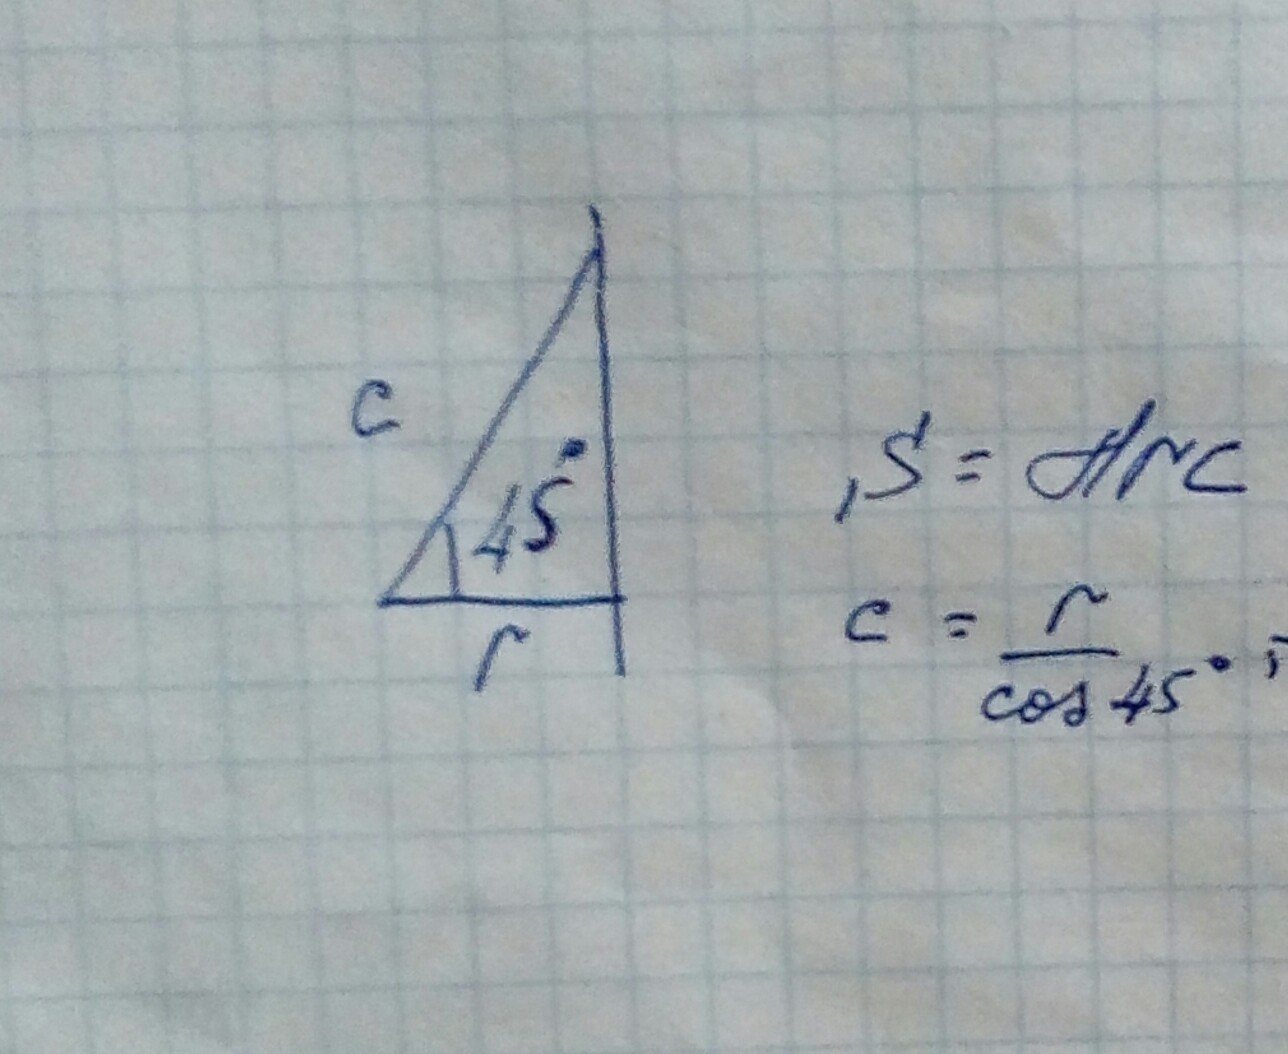 c
45°
r
S = πrc
c = r / cos 45° ;